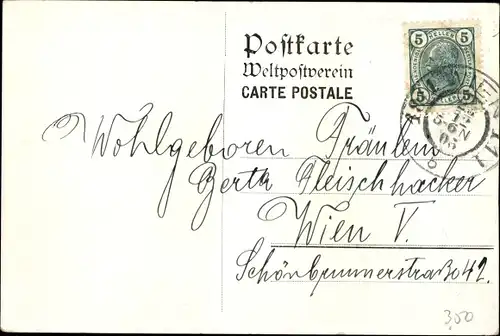 Postkarte
Weltpostverein
CARTE POSTALE
5 HELLER 5
5 5
Wohlgeboren Fräulein
Berta Fleischhacker
Wien V.
Schönbrunnerstraße 42.
3,50